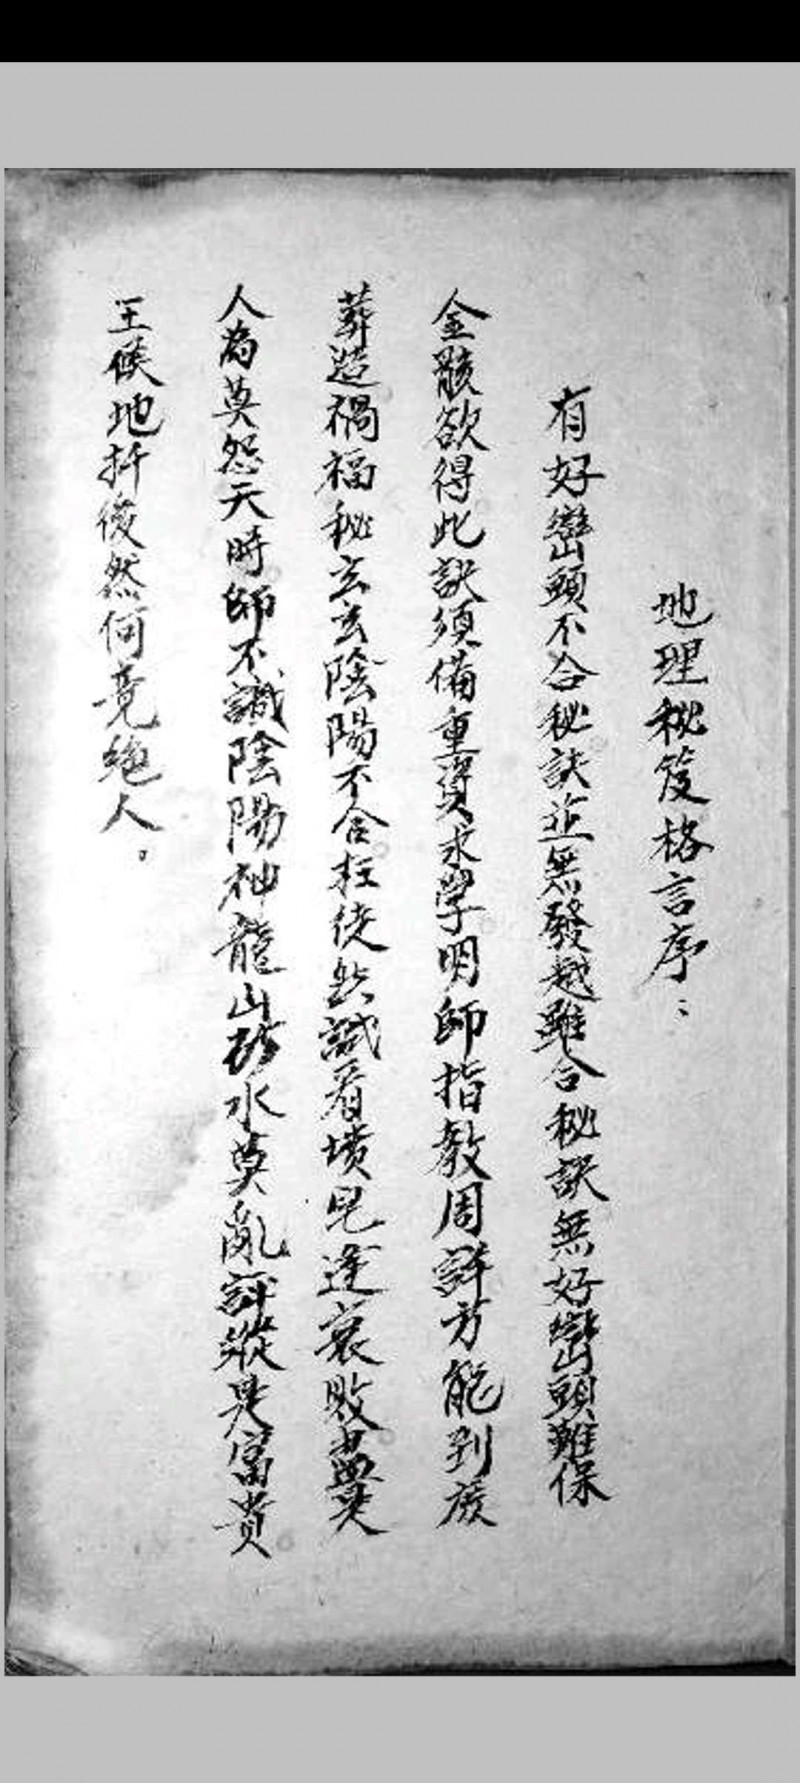 地理秘笈格言序：
有好巒頭不合秘訣並無發越雖合秘訣無好巒頭難保
金骸欲得此訣須備重資求學明師指教周詳方能到廣
葬造禍福秘玄玄陰陽不合枉徒然誠看墳兒逢衰敗盡是
人為莫怨天時師不識陰陽神龍山砂水莫亂評縱是富貴
王候地扦後然何竟絕人。